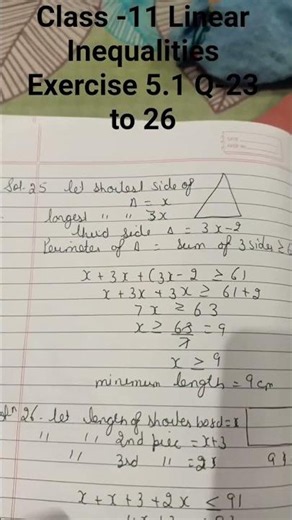 Class -11 Linear
Inequalities
Exercise 5.1 Q-23
to 26
Sol. 25 let shortest side of
Δ = x
longest " " 3x
third side Δ = 3x-2
Perimeter of Δ = sum of 3 sides ≥ 6
x + 3x + (3x-2 ≥ 61
x + 3x + 3x ≥ 61+2
7x ≥ 63
x ≥ 63/7 = 9
x ≥ 9
minimum length = 9 cm
26. let length of shortest board = x
" " 2nd piec = x+3
" 3rd " = 2x
91
x + x + 3 + 2x ≤ 91